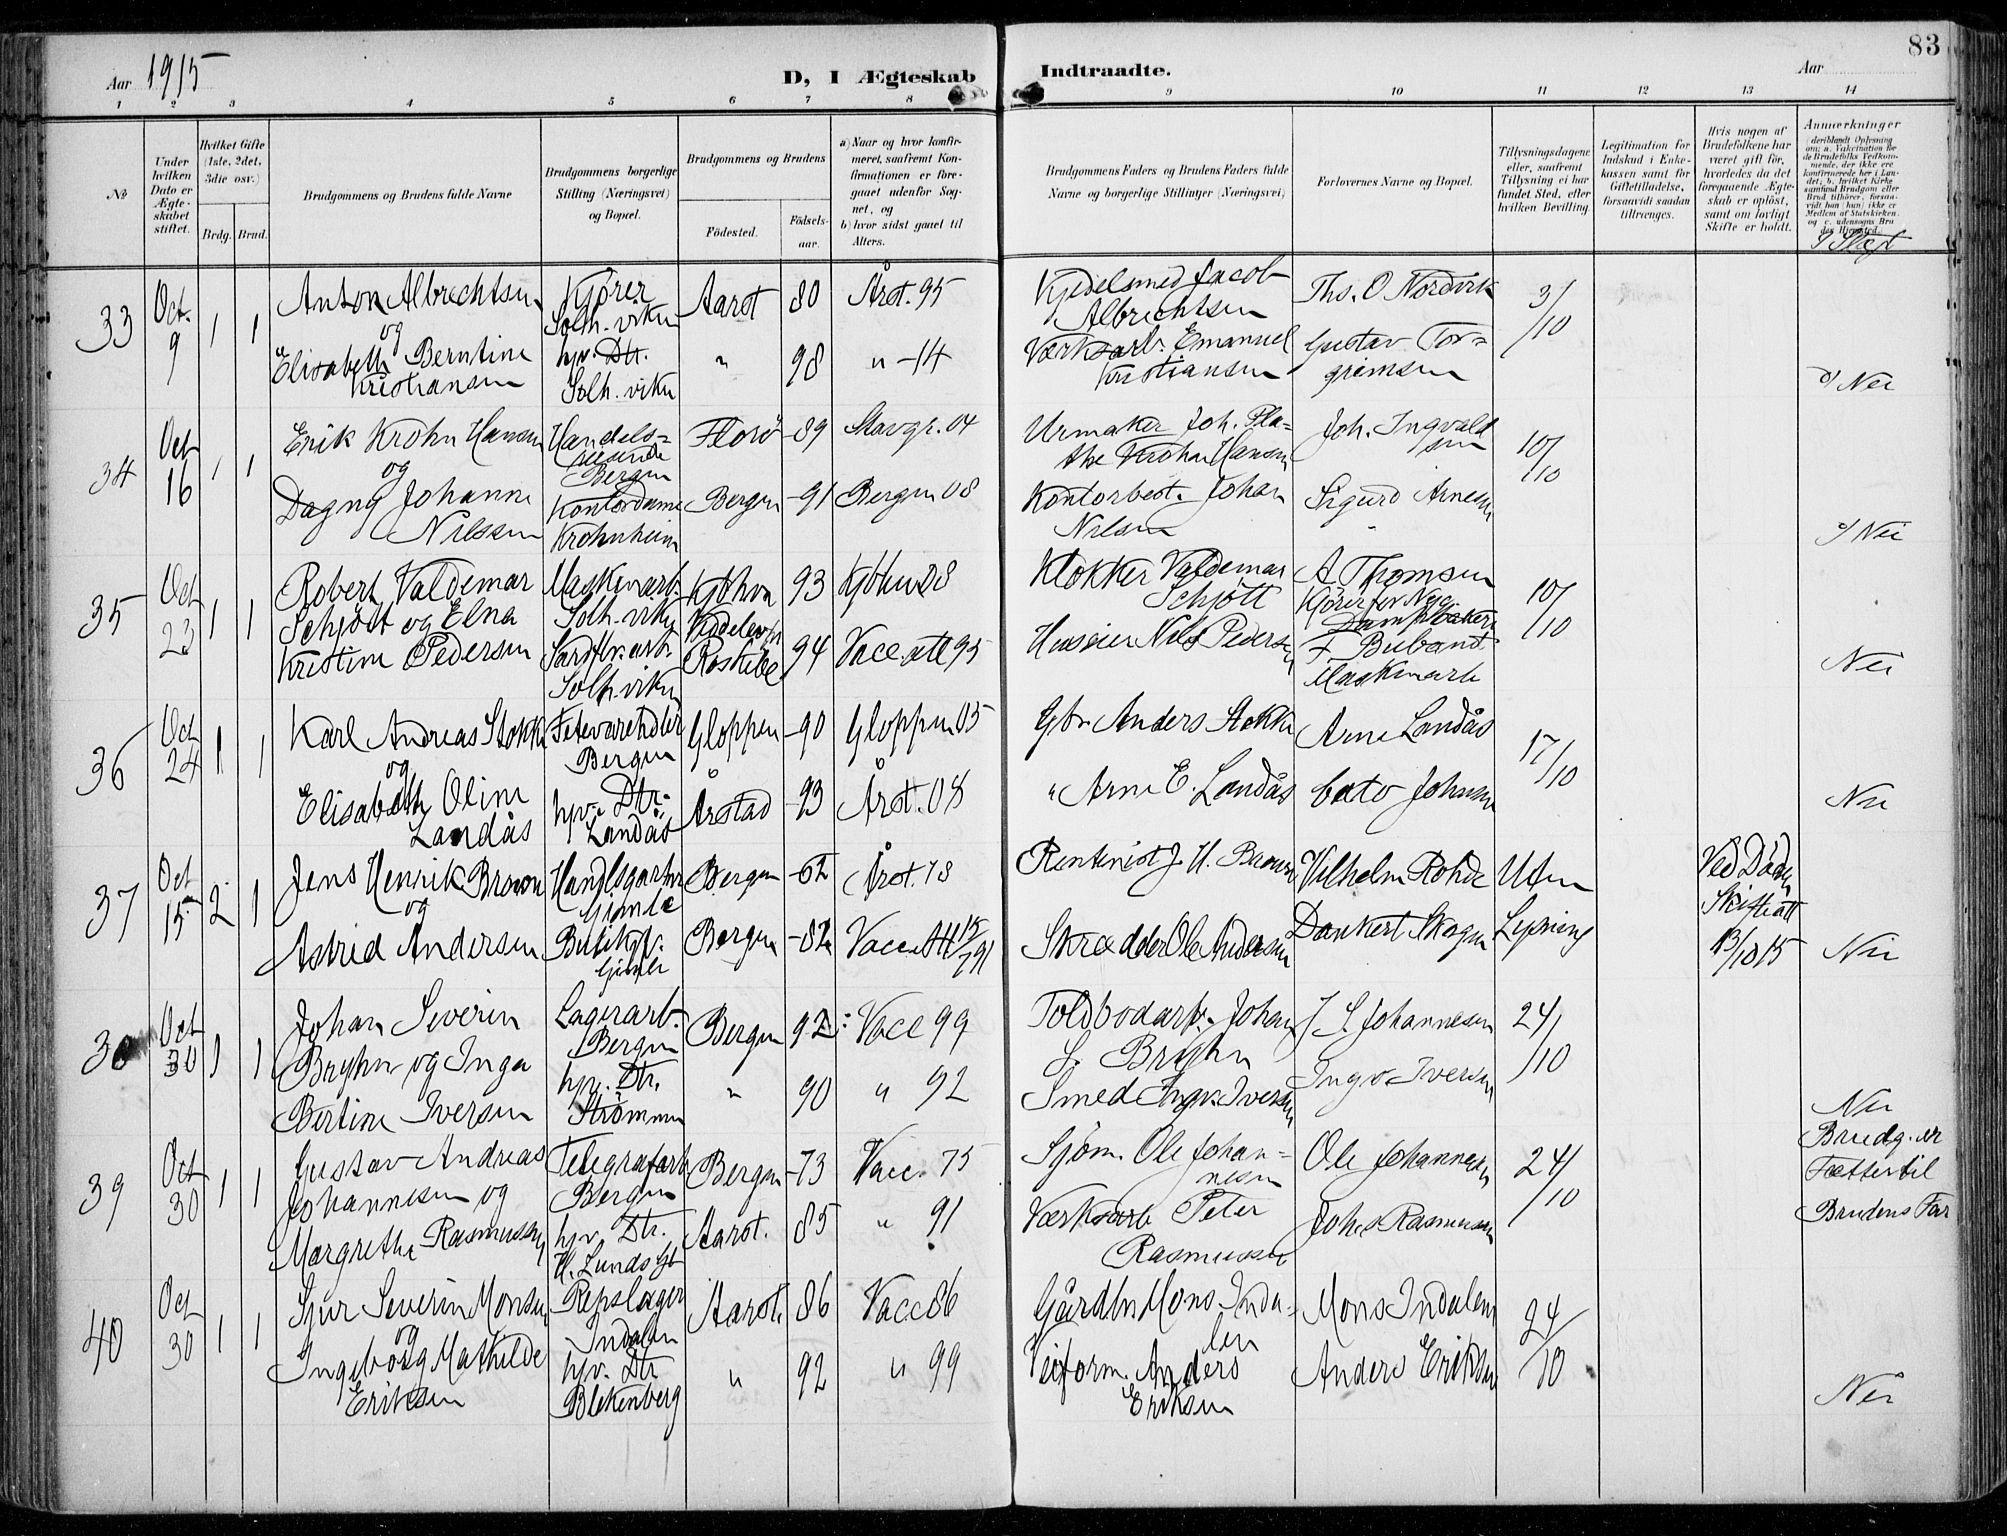 83
Aar 1915
D, I Ægteskab Indtraadte.
Aar
1 2 3 4 5 6 7 8 9 10 11 12 13 14
No
Under hvilken Dato er Ægteskabet stiftet.
Hvilket Gifte (1ste, 2det, 3die osv.)
Brdg. Brud.
Brudgommens og Brudens fulde Navne
Brudgommens borgerlige Stilling (Næringsvei) og Bopæl.
Brudgommens og Brudens
Födested. Födselsaar.
a) Naar og hvor konfirmeret, saafremt Konfirmationen er foregaaet udenfor Sognet, og
b) hvor sidst gaaet til Alters.
Brudgommens Faders og Brudens Faders fulde Navne og borgerlige Stillinger (Næringsvei)
Forlovernes Navne og Bopæl.
Tillysningsdagene eller, saafremt Tillysning ei har fundet Sted, efter hvilken Bevilling.
Legitimation for Indskud i Enkekassen samt for Giftetilladelse, forsaavidt saadan tiltrænges.
Hvis nogen af Brudefolkene har været gift för, hvorledes da det foregaaende Ægteskab er oplöst, samt om lovligt Skifte er holdt.
Anmærkninger
(deriblandt Oplysning om: a. Vakcination for de Brudefolks Vedkommende, der ikke ere konfirmerede her i Landet; b. hvilket Kirkesamfund Brudgom eller Brud tilhörer, forsaavidt han (hun) ikke er Medlem af Statskirken, og c. udensogns Brudes Hjemsted.)
33 Oct. 9 1 1 Anton Albrechtsen Kjører Solh.viken Aarst 80 Årst. 95 Kjedelsmed Jacob Albrechtsen Ths. O Nordvik 3/10
og Elisabeth Berntine Kristiansen hjv. Dtr. Solh.viken " 98 " -14 Værksarb. Emanuel Kristiansen Gustav Torgrimsen Nei
34 Oct 16 1 1 Erik Krohn Hansen Handelsreisende Bergen Florö -89 Stavgr. 04 Urmaker Joh. Plathe Krohn Hansen Joh. Ingvaldsen 10/10
og Dagny Johanne Nilssen Kontordame Krohnheim Bergen -91 Bergen 08 Kontorbest. Johan Nilsen Sigurd Arnesen Nei
35 Oct 23 1 1 Robert Valdemar Schjött og Elna Kristine Pedersen Maskinarb. Solh.viken Kjöhvn 93 Kjöhvn 08 Klokker Valdemar Schjött A Thomsen 10/10
Solh.viken Roskilde 94 Vacc. att 95 Huseier Nils Pedersen Maskinarb Nei
36 Oct 24 1 1 Karl Andreas Stokke Fetevarehdler Bergen Gloppen -90 Gloppen 05 Gbr. Anders Stokke Arne Landås 17/10
og Elisabeth Oline Landås hjv. Dtr. Landås Årstad -93 Årst. 08 " Arne E. Landås Cato Johnsen Nei
37 Oct 15 2 1 Jens Henrik Brown Handlsgartnr Gimle Bergen -62 Årst. 78 Rentenist J. H. Brown Vilhelm Rohde Uten Lysning Ved Døden Skifteatt 13/10 15
og Astrid Andersen Gimle Bergen -82 Vacc. att 15/7 91 Skrædder Ole Andersen Dankert Skogen Nei
38 Oct 30 1 1 Johan Severin Bryhn og Inga Bertine Iversen Lagerarb. Bergen Bergen 92 Vacc 99 Toldbodarb. Johan S. Bryhn J S. Johannesen 24/10
hjv. Dtr. Strömmen " 90 " 92 Smed Ingv. Iversen Ingv Iversen Nei
39 Oct 30 1 1 Gustav Andreas Johannesen og Telegrafarb Bergen Bergen -73 Vacc. 75 Sjøm. Ole Johannesen Ole Johannesen 24/10 Brudg. er Fætter til Brudens Far
Margrethe Rasmussen hjv. Dtr. H. Lunds gt Aarst. 85 " 91 Værksarb Peter Rasmussen Johs Rasmussen
40 Oct 30 1 1 Sjur Severin Monsen Repslager Indalen Aarst. 86 Vacc 86 Gårdbr. Mons Indalen Mons Indalen 24/10
og Ingeborg Mathilde Eriksen hjv. Dtr Blekenberg " 92 " 99 Veiform. Anders Eriksen Anders Eriksen Nei